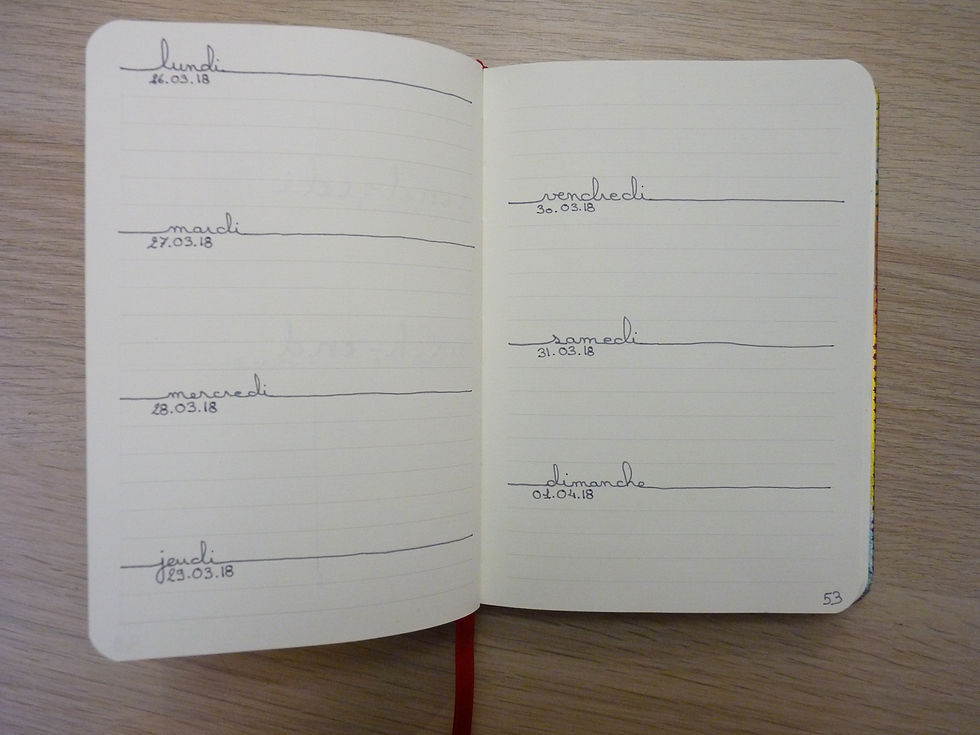 lundi
26.03.18
mardi
27.03.18
mercredi
28.03.18
jeudi
29.03.18
vendredi
30.03.18
samedi
31.03.18
dimanche
01.04.18
53